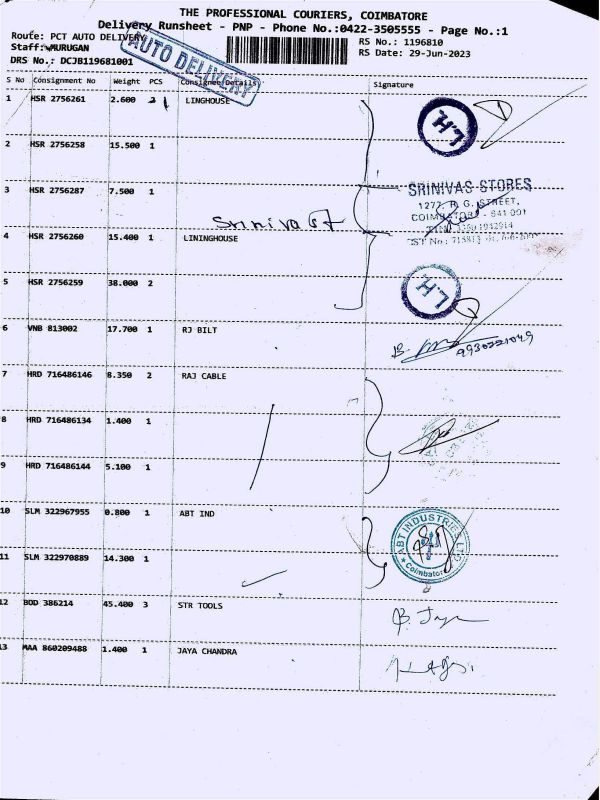 THE PROFESSIONAL COURIERS, COIMBATORE
Delivery Runsheet - PNP - Phone No.:0422-3505555 - Page No.:1
Route: PCT AUTO DELIVERY
RS No.: 1196810
Staff: MURUGAN
RS Date: 29-Jun-2023
DRS No.: DCJB119681001
AUTO DELIVERY
S No Consignment No Weight PCS Consignee Details Signature
1 HSR 2756261 2.600 1 LINGHOUSE
L.H.
2 HSR 2756258 15.500 1
3 HSR 2756287 7.500 1
SRINIVAS STORES
1277, R. G. STREET,
COIMBATORE - 641 001
Srinivas
4 HSR 2756260 15.400 1 LININGHOUSE
5 HSR 2756259 38.000 2
L.H.
6 VNB 813002 17.700 1 RJ BILT
9930221049
7 HRD 716486146 8.350 2 RAJ CABLE
8 HRD 716486134 1.400 1
9 HRD 716486144 5.100 1
10 SLM 322967955 0.800 1 ABT IND
ABT INDUSTRIES LTD
Coimbatore
11 SLM 322970889 14.300 1
12 BOD 386214 45.400 3 STR TOOLS
13 MAA 860209488 1.400 1 JAYA CHANDRA